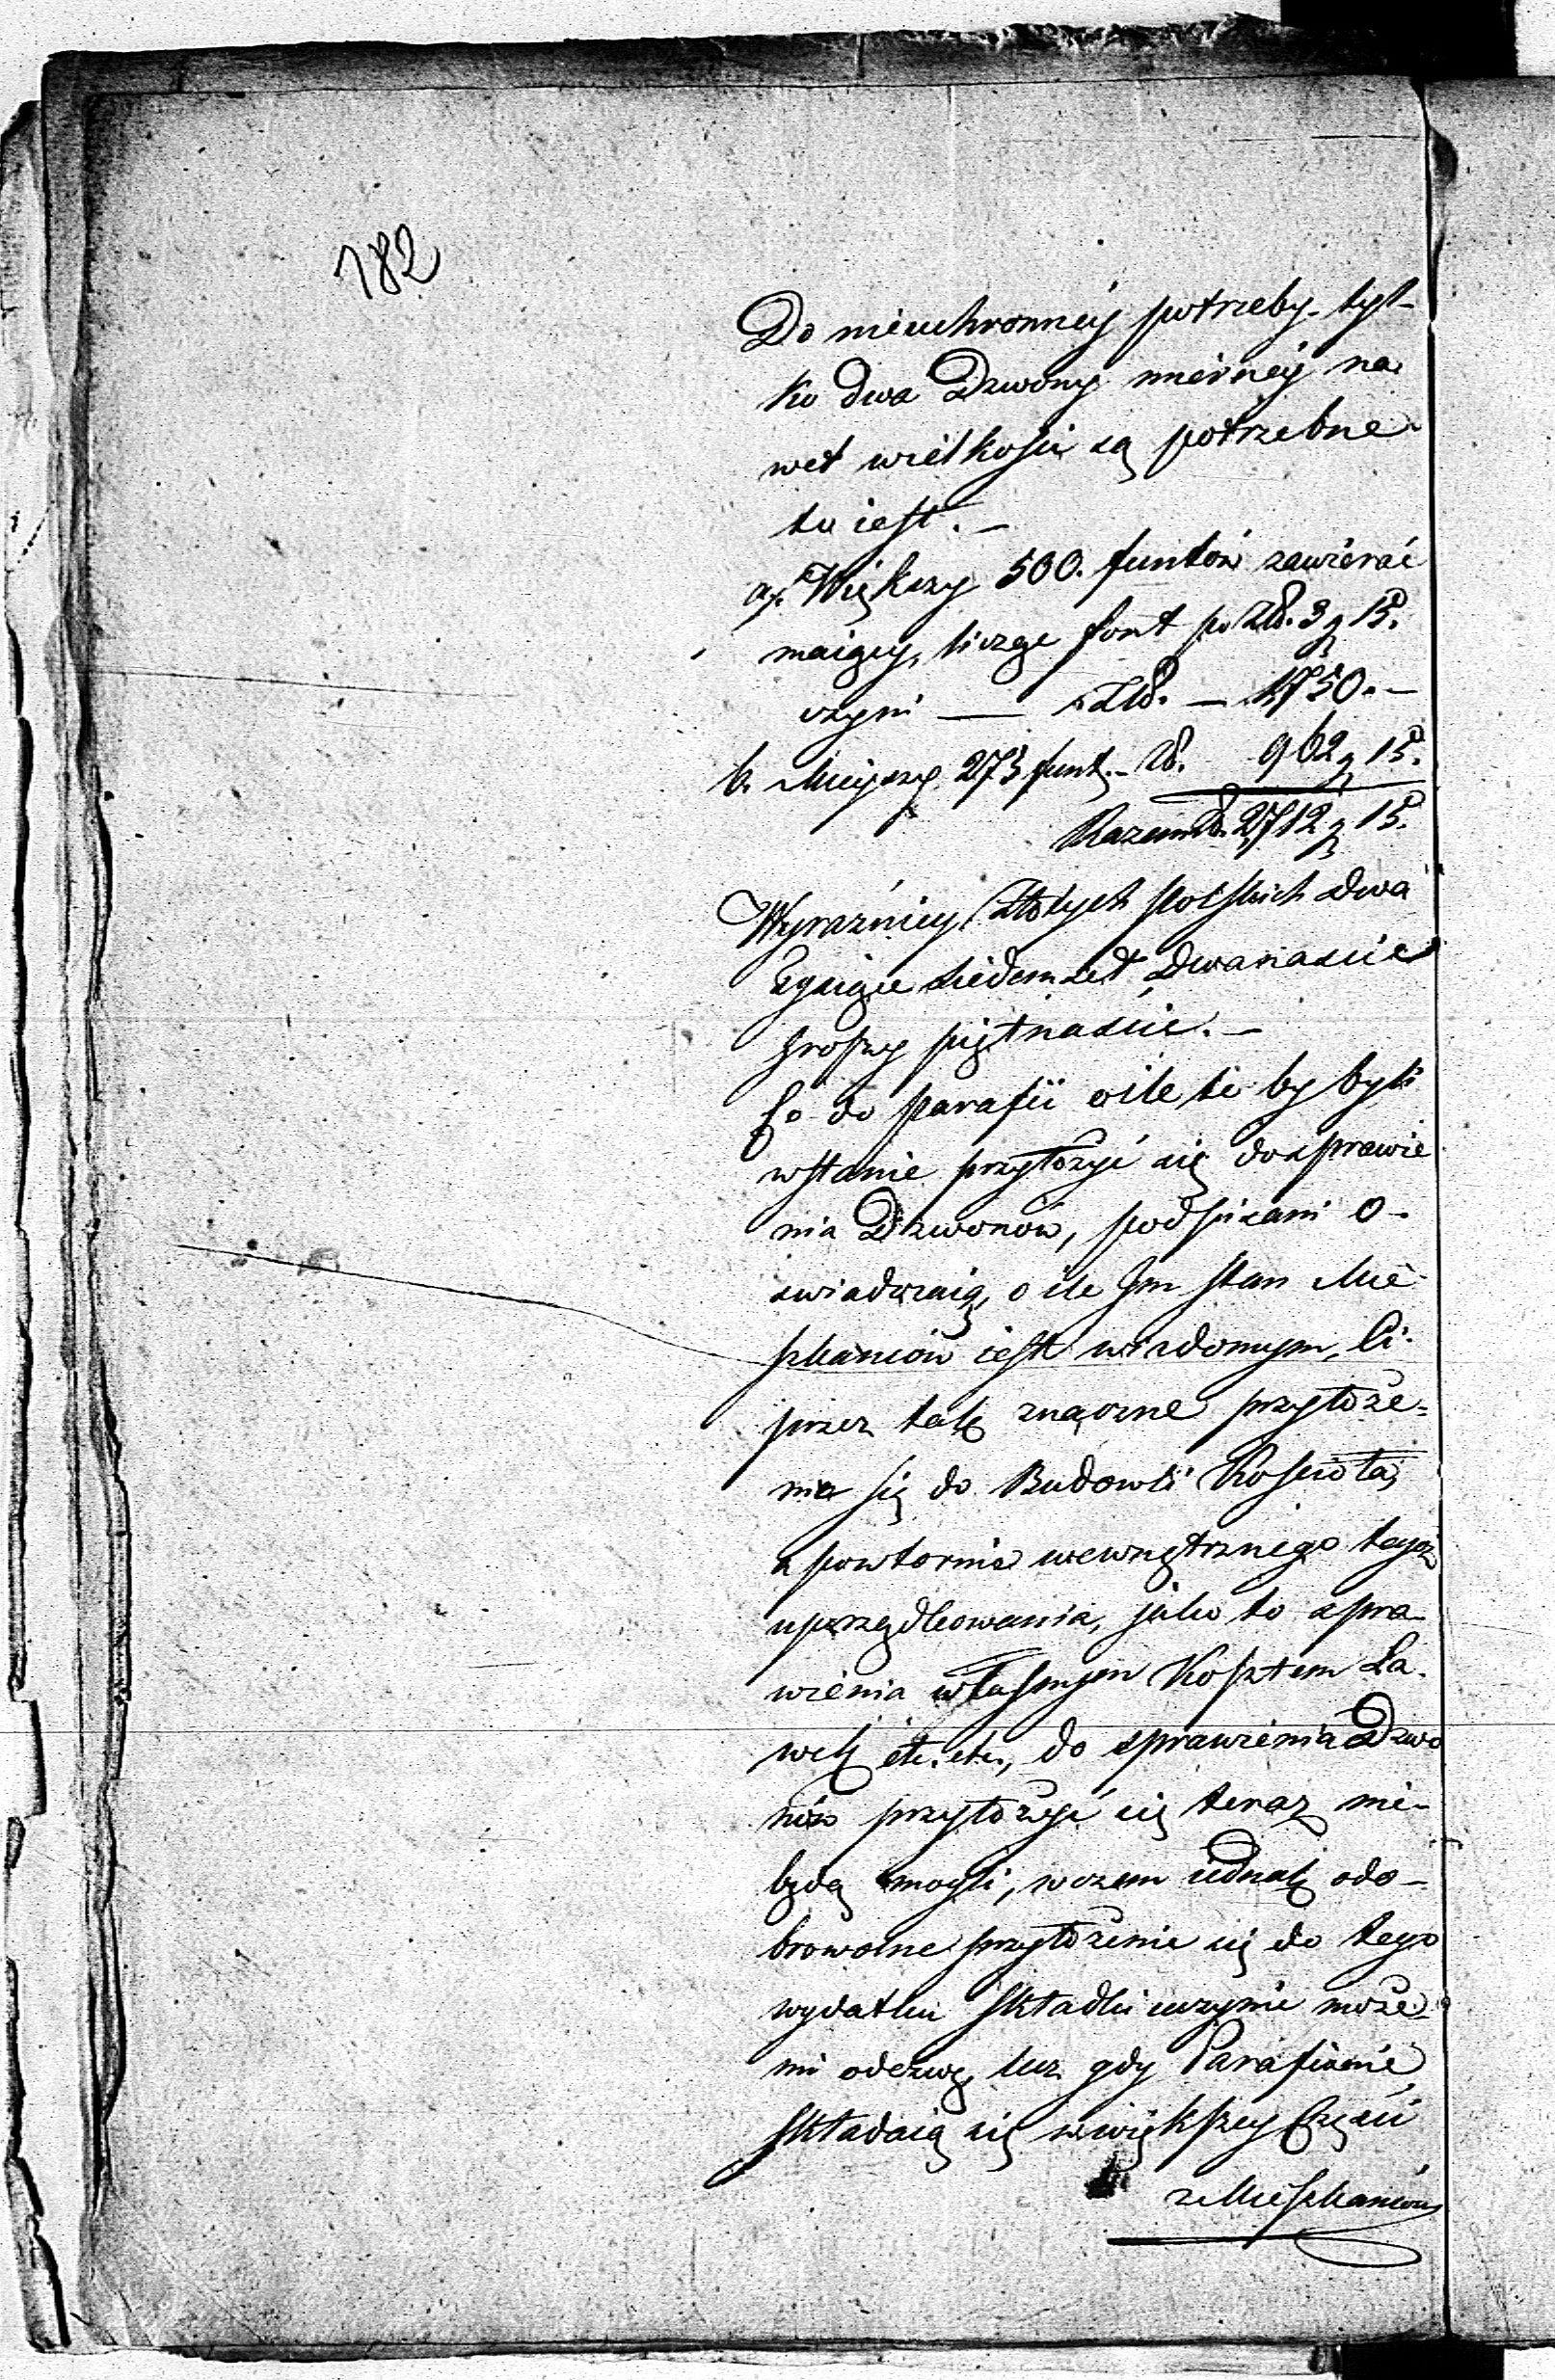 182
Do nieuchronney potrzeby tyl-
ko dwa Dzwony mierney na
wet wielkości są potrzebne
to iest. –
a. Większy 500. funtów zawierać
maiący, licząc font po Złł. 3 g 15.
czyni — Złł. – 1750. –
b. Mnieyszy 275 funt. – Złł. 962 g 15.
Razem Złł. 2712 g 15.
Wyraźniey Złotych polskich dwa
tysiące siedemset dwanaście
groszy piętnaście. –
Co do parafii o ile ci by byli
wstanie przyłożyć się do sprawie
nia Dzwonów, podpisani o-
swiadczaią, o ile Im stan Mie-
szkańców iest wiadomym, Ci
przez tak znaczne przyłoże=
nie się do Budowli Kościoła,
a powtornie wewnętrznego tegoż
uporządkowania, jako to spra-
wienia własnym Kosztem Ła-
wek etc. etc., do sprawienia Dzwo
nów przyłożyć się teraz nie-
będą mogli, wczem iednak odo-
browolne przyłożenie się do tego
wydatku składki uczynić może-
my odezwę, lecz gdy Parafianie
składaią się w większey Części
z Mieszkańców